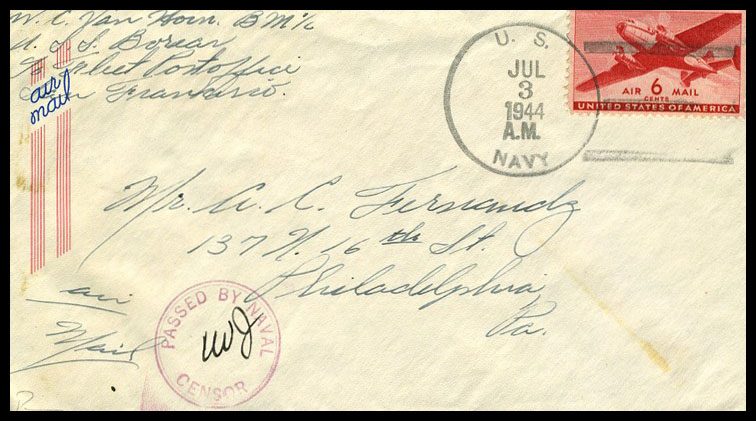 W. C. Van Horn. B M 1/c
U. S. S. Boreas
℅ Fleet Postoffice
San Francisco.
air
mail
U. S.
JUL
3
1944
A.M.
NAVY
AIR 6 MAIL
CENTS
UNITED STATES OF AMERICA
Mr. A. C. Fernandz
137 N. 16th St.
Philadelphia
Pa.
air
Mail
PASSED BY NAVAL
CENSOR